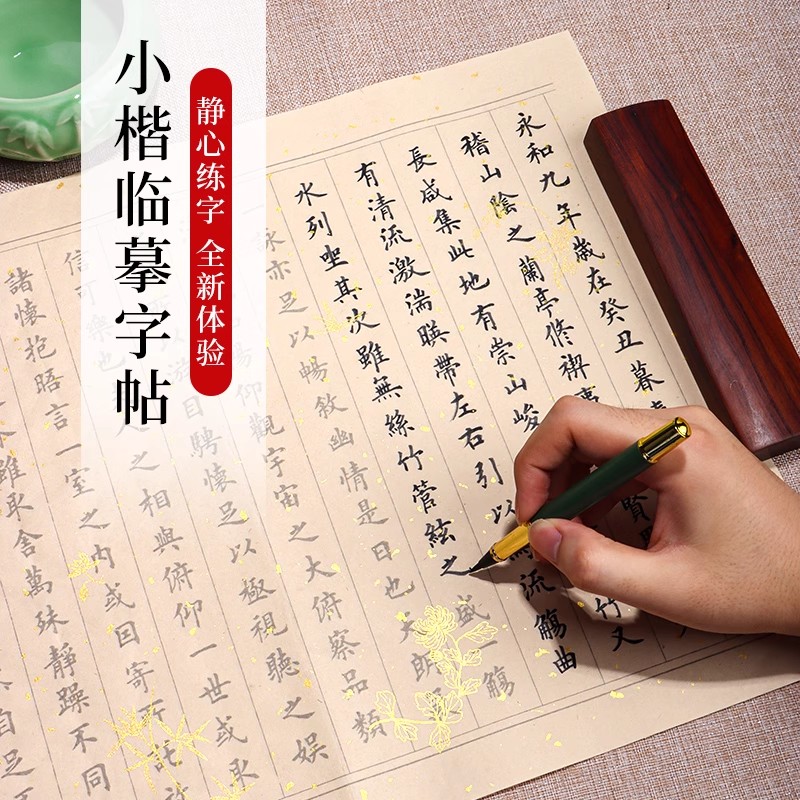 小楷临摹字帖
静心练字 全新体验
永和九年歲在癸丑暮
稽山陰之蘭亭脩禊事
賢
長咸集此地有崇山峻
竹又
有清流激湍暎帶左右引以為流觴曲
水列坐其次雖無絲竹管絃之盛一觴
詠亦足以暢敘幽情是日也天朗
仰觀宇宙之大俯察品類
遊目騁懷足以極視聽之娛
信可樂也
人之相與俯仰一世或取
諸懷抱晤言一室之內或因寄所託
雖取舍萬殊靜躁不同
自足